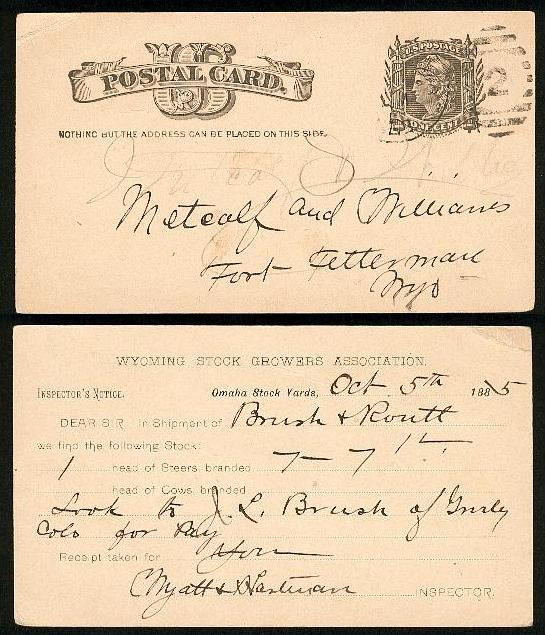 US
POSTAL CARD.
U.S. POSTAGE
ONE CENT
2
NOTHING BUT THE ADDRESS CAN BE PLACED ON THIS SIDE.
Metcalf and Williams
Fort Fetterman
Wyo
WYOMING STOCK GROWERS ASSOCIATION.
INSPECTOR'S NOTICE. Omaha Stock Yards, Oct 5th 1885
DEAR SIR: In Shipment of Brush & Routt
we find the following Stock:
1 head of Steers branded 7 - 7
head of Cows branded
Look to J. L. Brush of
Colo for Pay
Receipt taken for
Myatt & Hartman INSPECTOR.